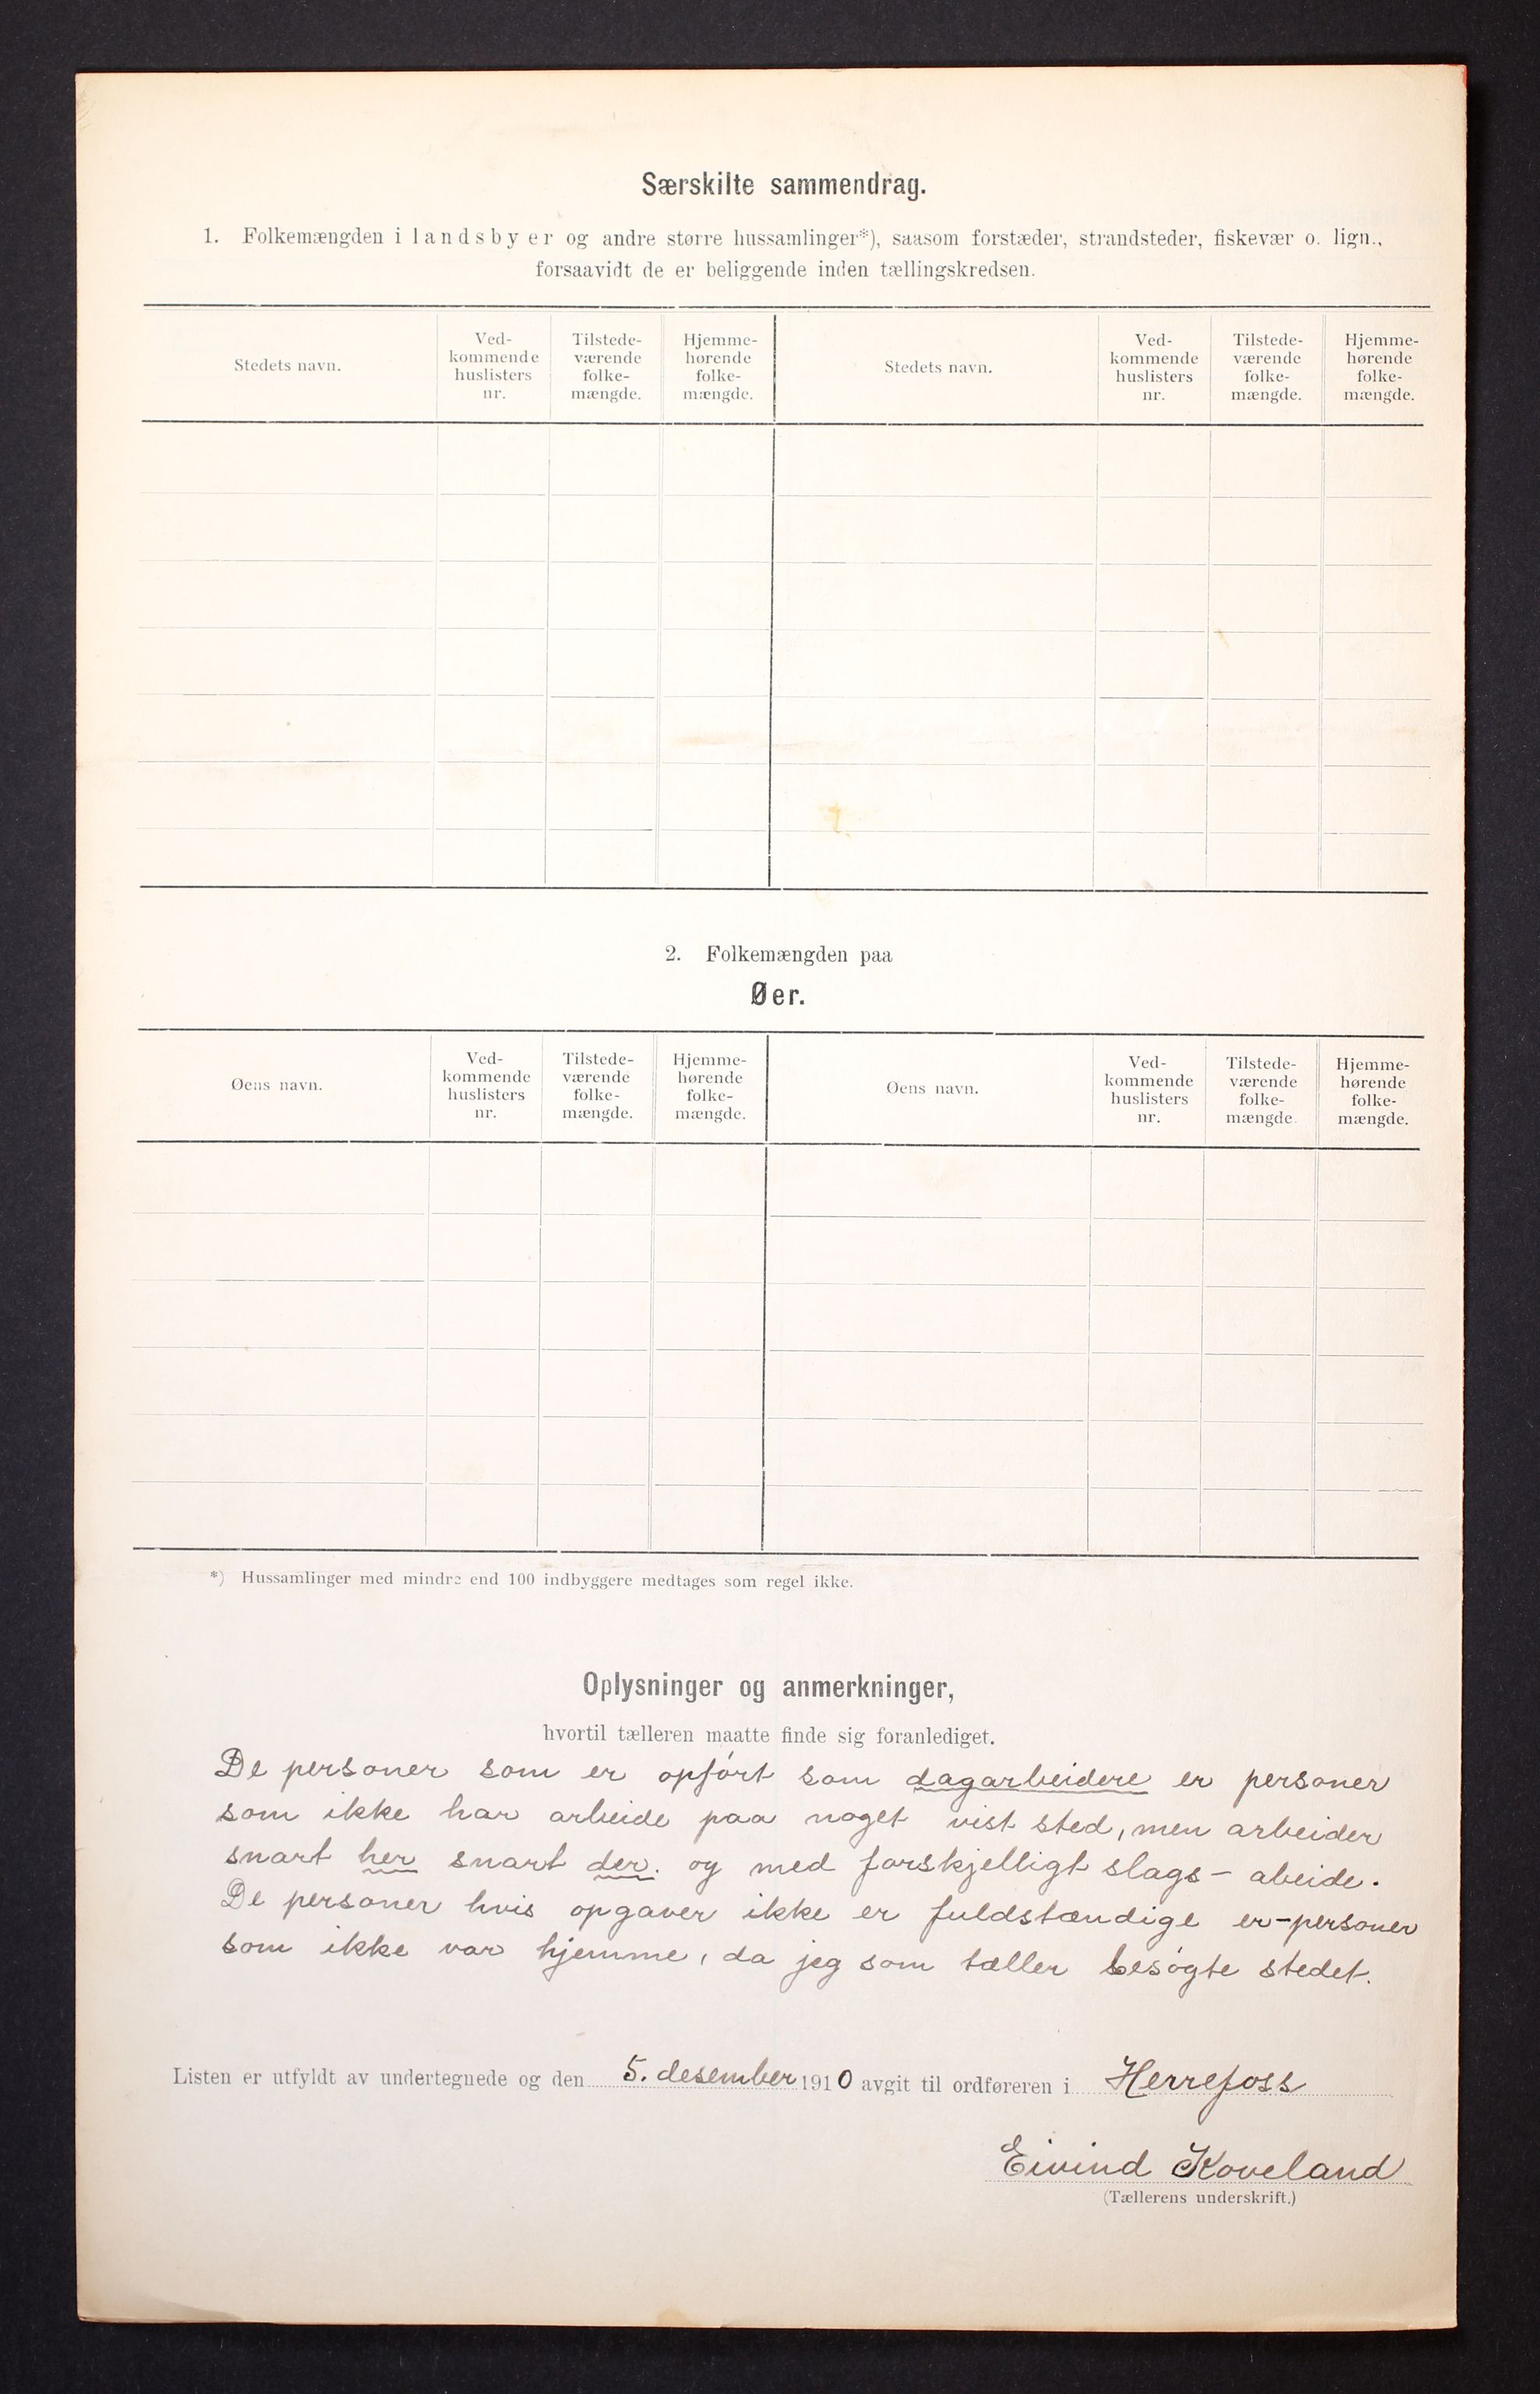 Særskilte sammendrag.
1. Folkemængden i landsbyer og andre større hussamlinger*), saasom forstæder, strandsteder, fiskevær o. lign.,
forsaavidt de er beliggende inden tællingskredsen.
Stedets navn.
Ved-
kommende
huslisters
nr.
Tilstede-
værende
folke-
mængde.
Hjemme-
hørende
folke-
mængde.
Stedets navn.
Ved-
kommende
huslisters
nr.
Tilstede-
værende
folke-
mængde.
Hjemme-
hørende
folke-
mængde.
2. Folkemængden paa
Øer.
Øens navn.
Ved-
kommende
huslisters
nr.
Tilstede-
værende
folke-
mængde.
Hjemme-
hørende
folke-
mængde.
Øens navn.
Ved-
kommende
huslisters
nr.
Tilstede-
værende
folke-
mængde
Hjemme-
hørende
folke-
mængde.
*) Hussamlinger med mindre end 100 indbyggere medtages som regel ikke.
Oplysninger og anmerkninger,
hvortil tælleren maatte finde sig foranlediget.
De personer som er opført som dagarbeidere er personer
som ikke har arbeide paa noget vist sted, men arbeider
snart her snart der. og med forskjelligt slags - abeide.
De personer hvis opgaver ikke er fuldstændige er - personer
som ikke var hjemme, da jeg som tæller besøgte stedet.
Listen er utfyldt av undertegnede og den 5. desember 1910 avgit til ordføreren i Herrefoss
Eivind Koveland
(Tællerens underskrift.)